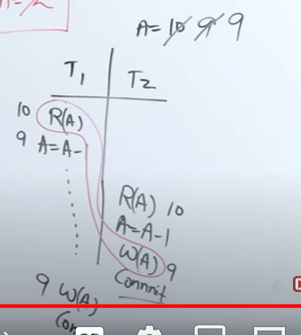 A = 10 9 9
T1 T2
10 R(A)
9 A=A-
R(A) 10
A=A-1
W(A) 9
Commit
9 W(A)